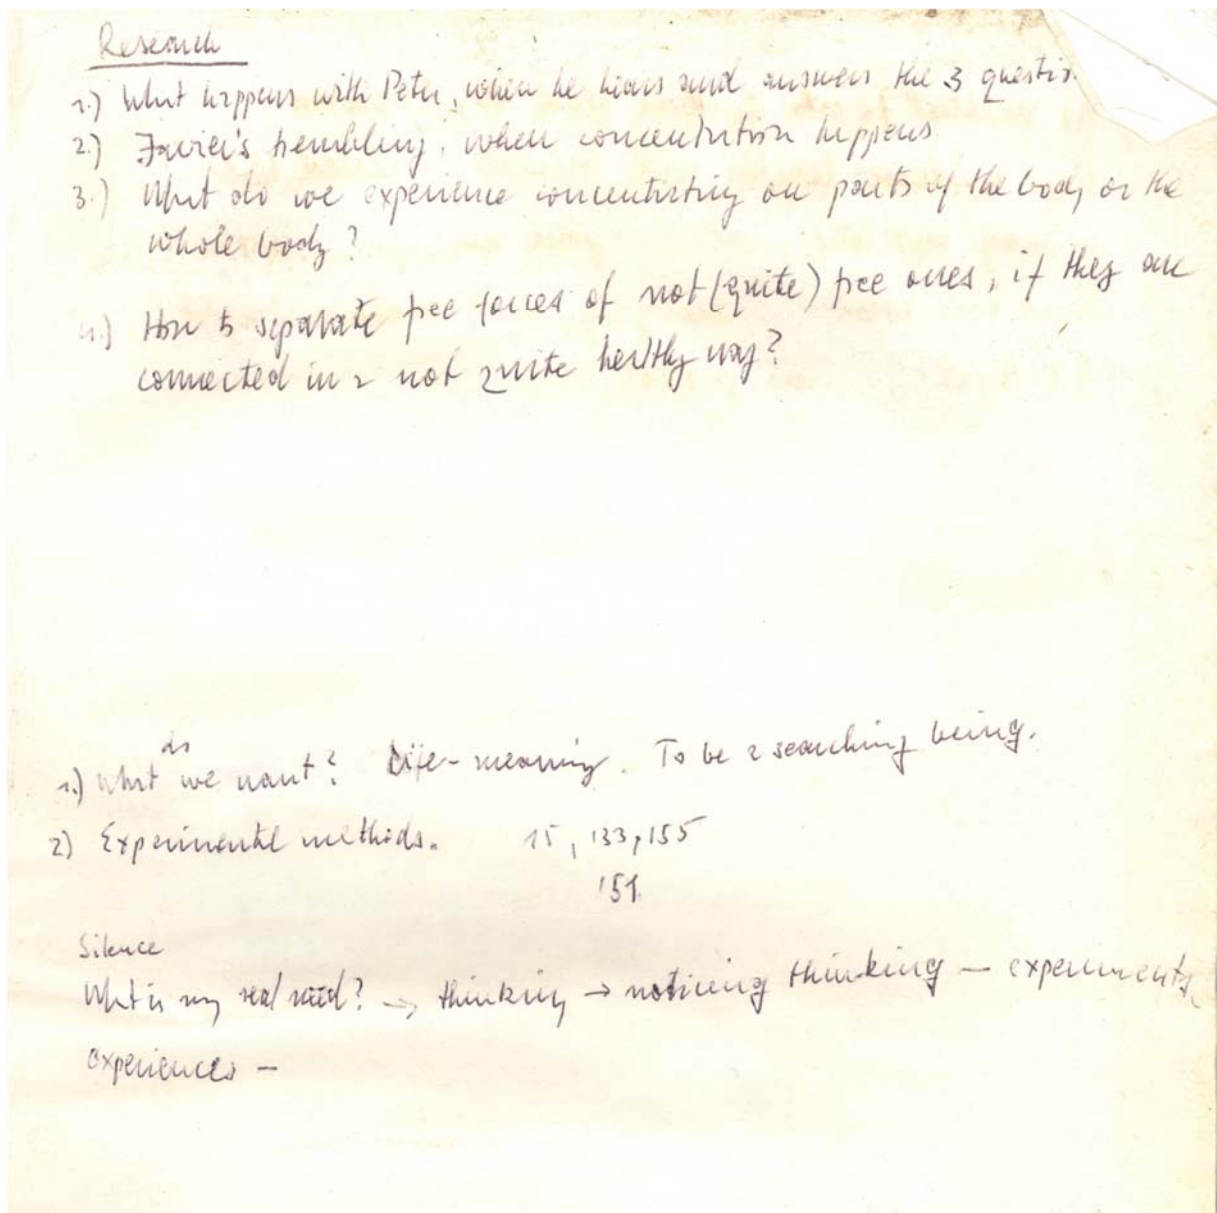 Research
1.) What happens with Peter, when he hears and answers the 3 questio
2.) Javier's trembling, when concentration happens.
3.) What do we experience concentrating on parts of the body or the
whole body?
4.) How to separate free forces of not (quite) free ones, if they are
connected in a not quite healthy way?
do
1.) What we want? Life-meaning. To be a searching being.
2) Experimental methods. 15, 133, 155
151.
Silence
What is my real need? → thinking → noticing thinking — experiments,
experiences —